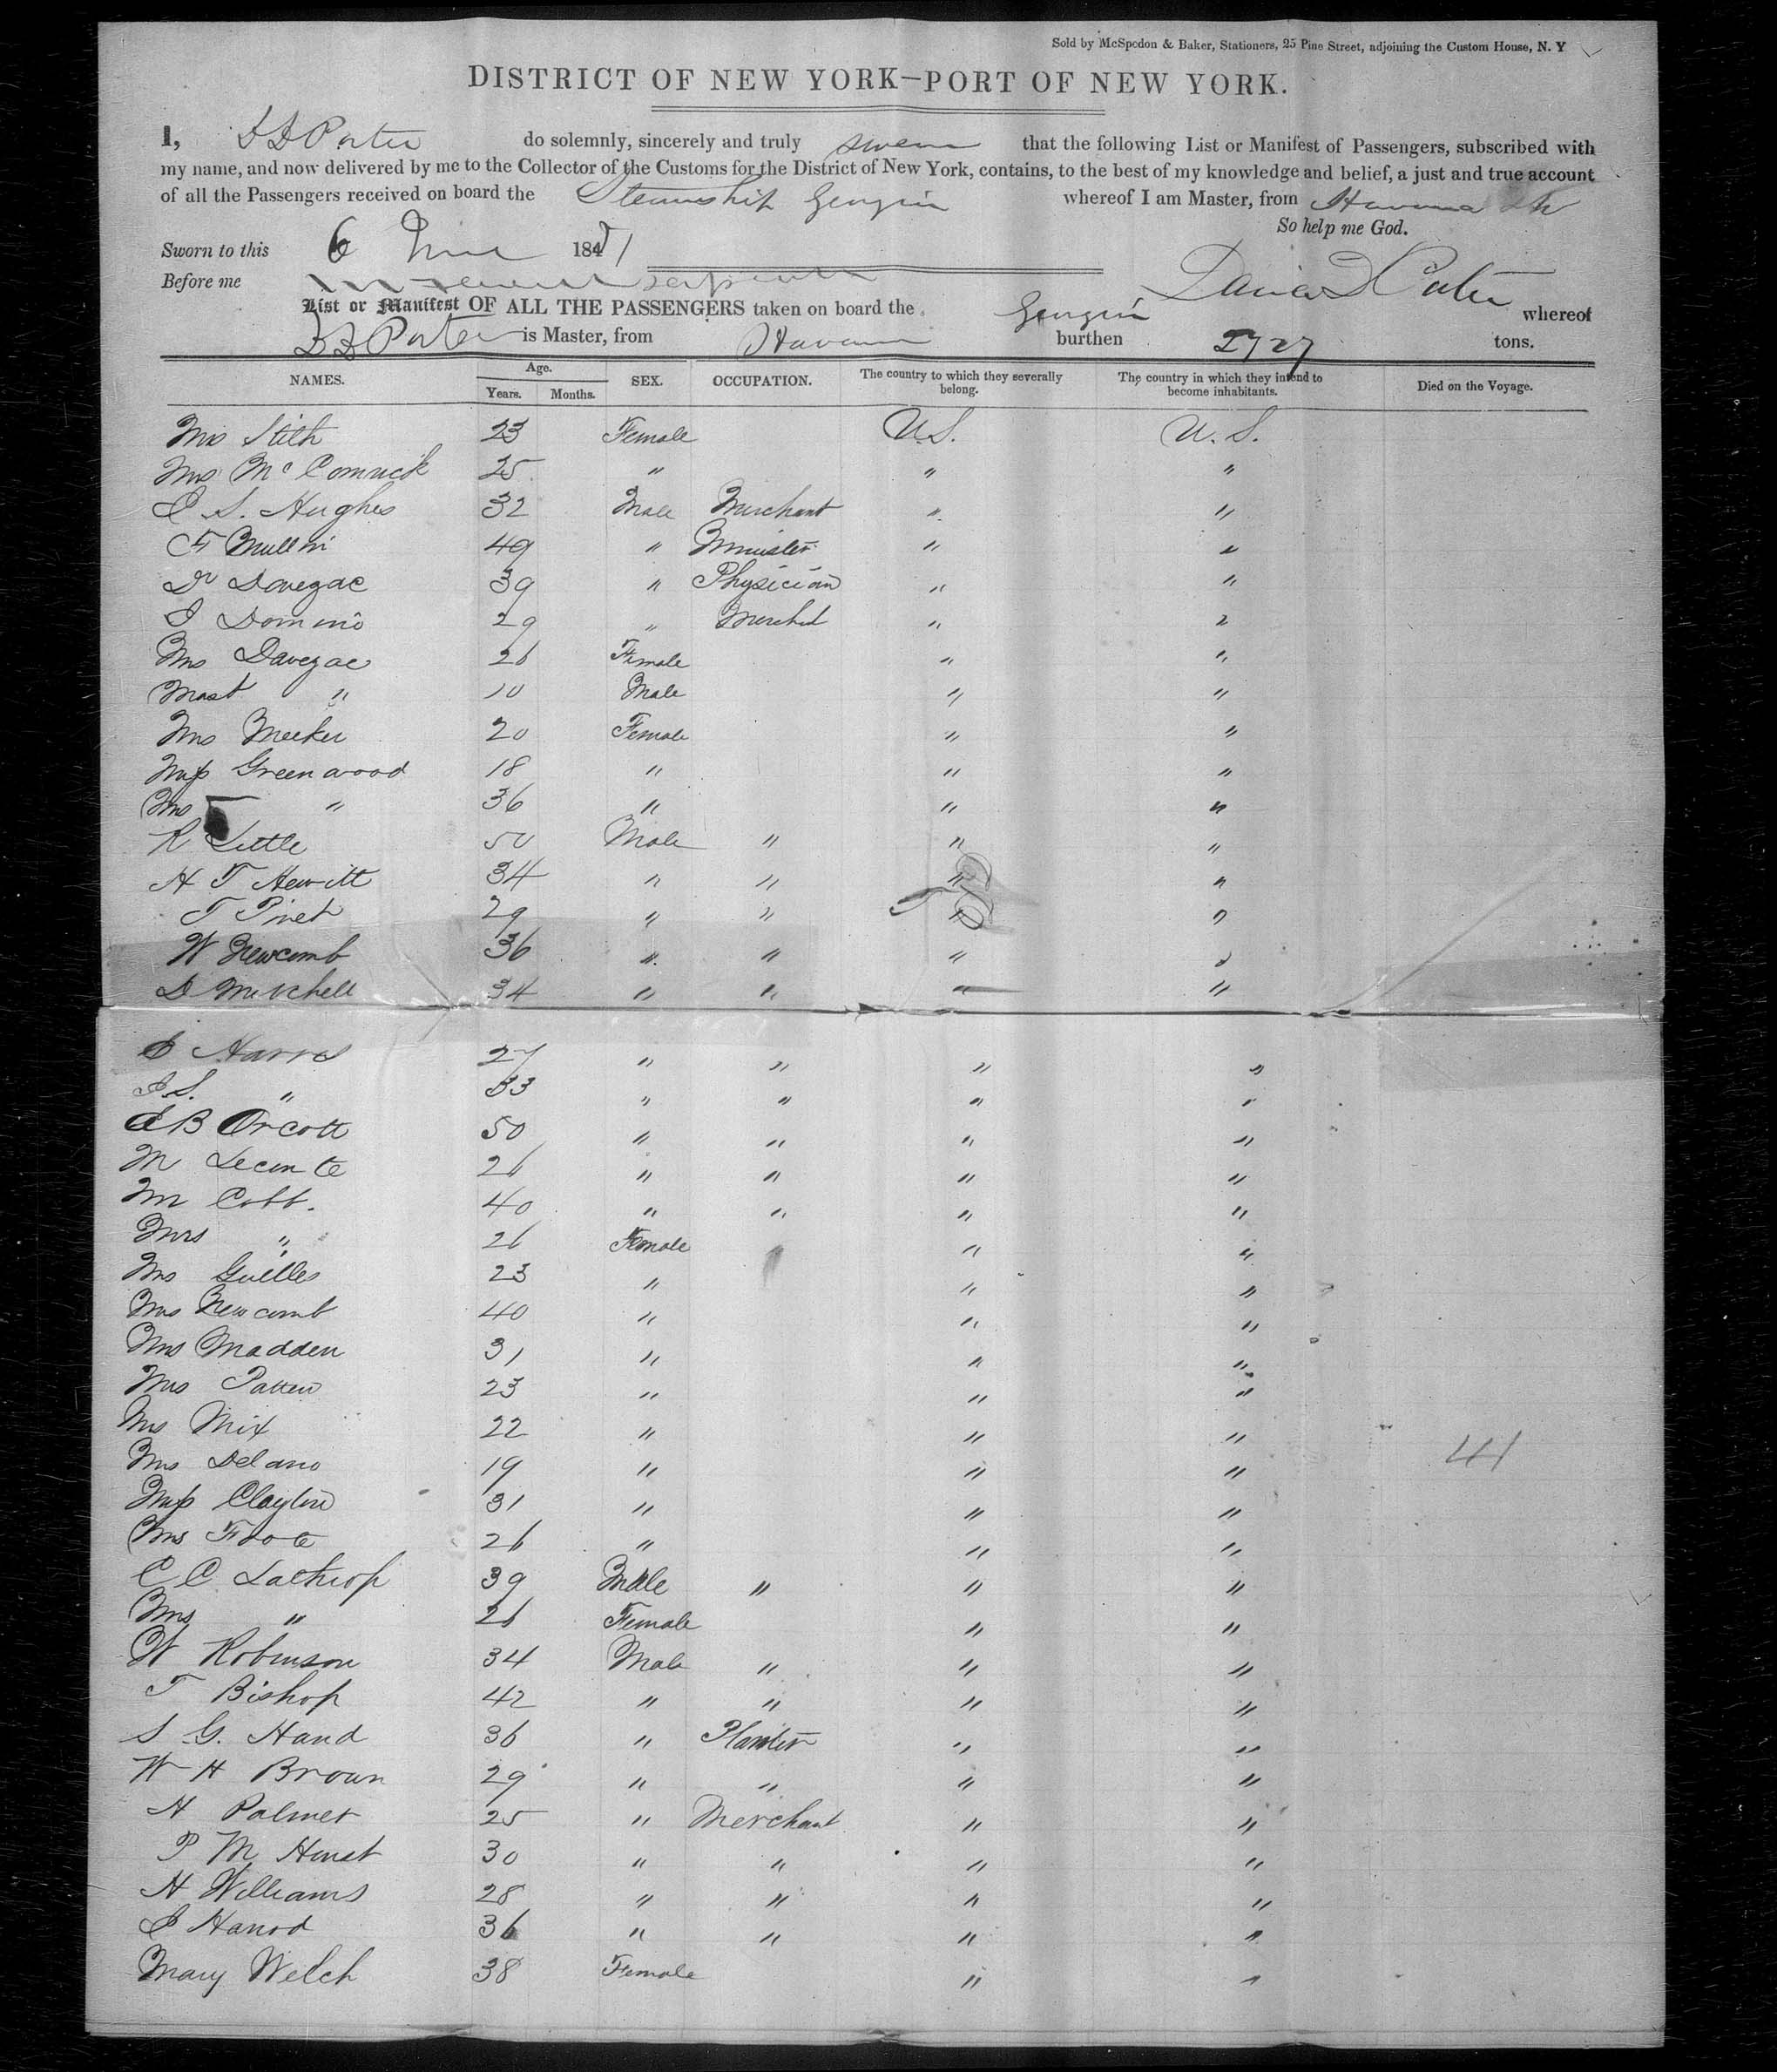 Sold by McSpedon & Baker, Stationers, 25 Pine Street, adjoining the Custom House, N. Y
DISTRICT OF NEW YORK—PORT OF NEW YORK.
I, D D Porter do solemnly, sincerely and truly swear that the following List or Manifest of Passengers, subscribed with
my name, and now delivered by me to the Collector of the Customs for the District of New York, contains, to the best of my knowledge and belief, a just and true account
of all the Passengers received on board the Steamship Georgia whereof I am Master, from Havana
So help me God.
Sworn to this 6 June 1851
Before me
David D Porter
List or Manifest OF ALL THE PASSENGERS taken on board the Georgia whereof
D D Porter is Master, from Havana burthen 2727 tons.
NAMES. Age. Years. Months. SEX. OCCUPATION. The country to which they severally belong. The country in which they intend to become inhabitants. Died on the Voyage.
Mrs Stith 23 Female U.S. U.S.
Mrs McCormick 25 " " "
C S. Hughes 32 Male Merchant " "
F 49 " Minister " "
Dr Davezac 39 " Physician " "
J Domino 29 " Mercht " "
Mrs Davezac 26 Female " "
Mast " 10 Male " "
Mrs Meeker 20 Female " "
Miss Greenwood 18 " " "
Mrs " 36 " " "
R Little 50 Male " " "
H T Hewitt 34 " " " "
T Pinet 29 " " " "
W Newcomb 36 " " " "
D Mitchell 34 " " " "
Harris 27 " " " "
J. S. " 33 " " " "
B Orcott 50 " " " "
M Lecomte 26 " " " "
M Cobb. 40 " " " "
Mrs " 26 Female " "
Mrs 23 " " "
Mrs Newcomb 40 " " "
Mrs Madden 31 " " "
Mrs Patten 23 " " "
Mrs Mix 22 " " "
Mrs Delano 19 " " " 41
Miss Clayton 31 " " "
Mrs Foote 26 " " "
C C Lathrop 39 Male " " "
Mrs " 26 Female " "
W Robinson 34 Male " " "
T Bishop 42 " " " "
S G. Hand 36 " Planter " "
W H Brown 29 " " " "
H Palmer 25 " Merchant " "
P M Hunt 30 " " " "
H Williams 28 " " " "
J Harrod 36 " " " "
Mary Welch 38 Female " "